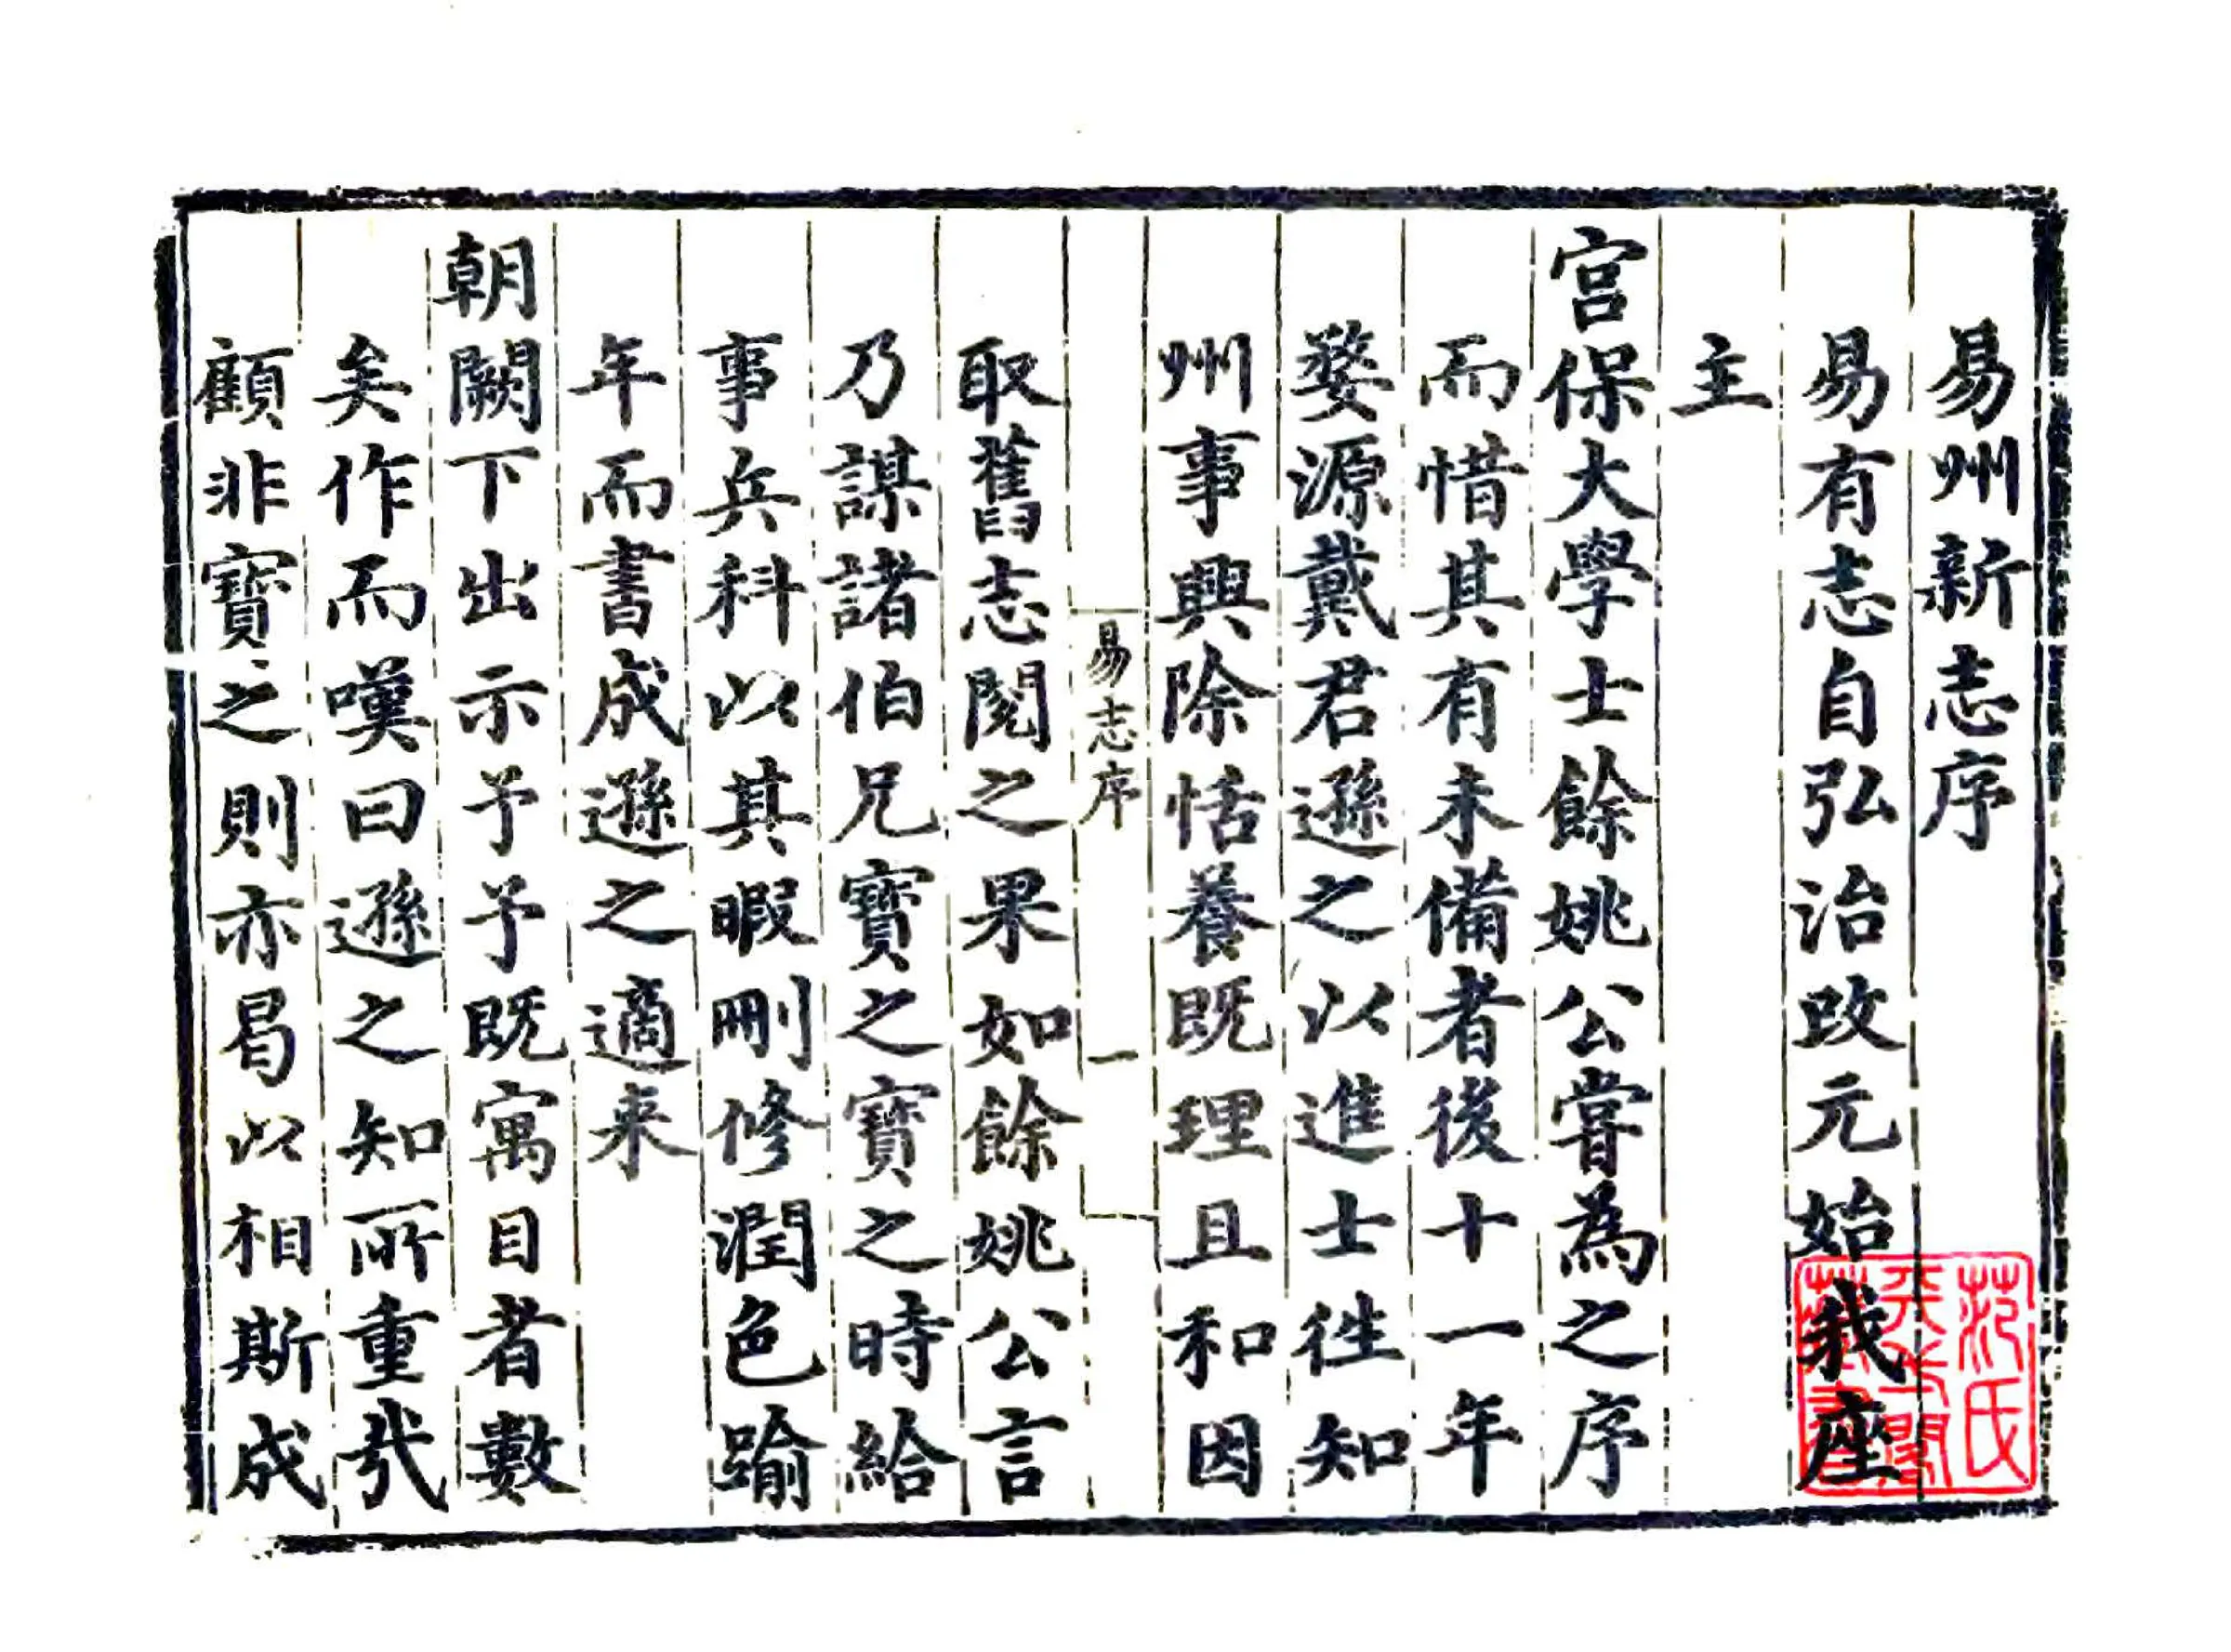 易州新志序
易有志自弘治改元始我座
主
宮保大學士餘姚公嘗為之序
而惜其有未備者後十一年
婺源戴君遜之以進士徃知
州事興除恬養既理且和因
易志序
一
取舊志閱之果如餘姚公言
乃謀諸伯兄寶之寶之時給
事兵科以其暇刪修潤色踰
年而書成遜之適来
朝闕下出示予予既寓目者數
矣作而嘆曰遜之知所重㢤
顧非寶之則亦曷以相斯成
范氏
天一閣
藏書